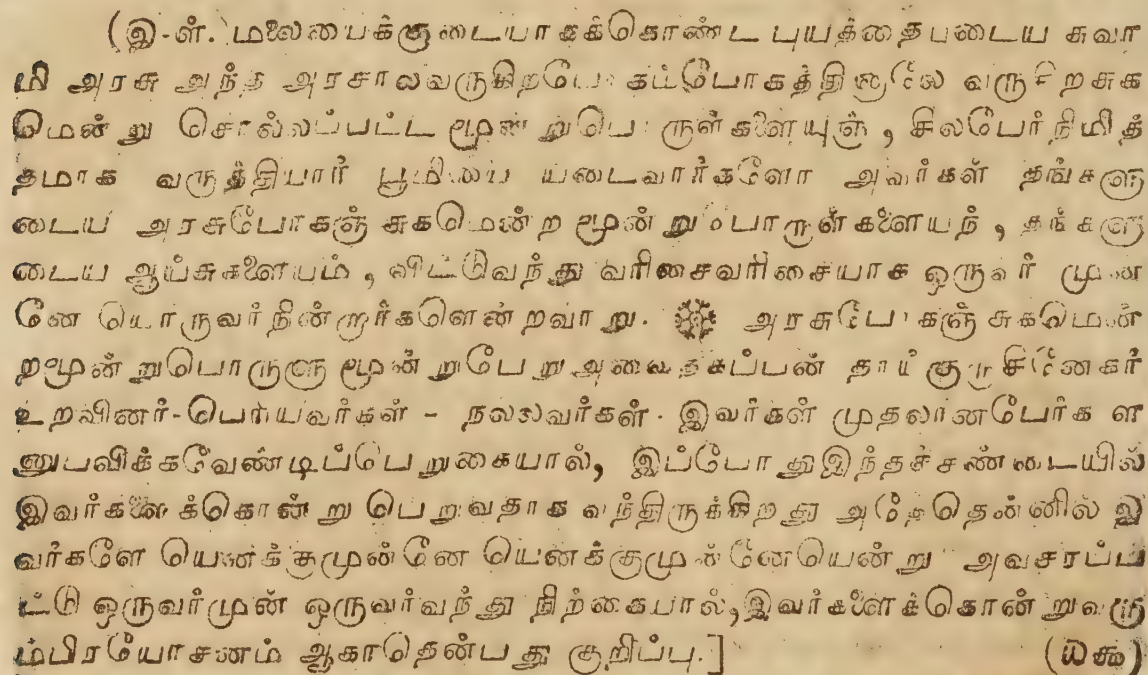 (இ-ள்.) மலையைக்குடையாகக்கொண்ட புயத்தைபடைய சுவா
மி அரசு அந்த அரசாலவருகிறபோகம்போகத்தினாலே வருகிறசுக
மென்று சொல்லப்பட்ட மூன்றுபொருள்களையுஞ், சிலபேர்நிமித்
தமாக வருத்தியார் பூமியை யடைவார்களோ அவர்கள் தங்களு
டைய அரசுபோகஞ் சுகமென்ற மூன்றுபொருள்களையந், தங்களு
டைய ஆய்சுகளையம், விட்டுவந்து வரிசைவரிசையாக ஒருவர் முன்
னே யொருவர்நின்றார்களென்றவாறு. அரசுபோகஞ் சுகமென்
றமூன்றுபொருளு மூன்றுபேறுஅவை தகப்பன் தாய் குரு சினேகர்
உறவினர்-பெரியவர்கள் - நல்லவர்கள். இவர்கள் முதலானபேர்க ள
னுபவிக்கவேண்டிப்பெறுகையால், இப்போதுஇந்தச்சண்டையில்
இவர்களைக்கொன்று பெறுவதாக வந்திருக்கிறது அதேதென்னில் இ
வர்களே யெனக்குமுன்னே யெனக்குமுன்னேயென்று அவசரப்ப
ட்டு ஒருவர்முன் ஒருவர்வந்து நிற்கையால்,இவர்களைக்கொன்றுவரு
ம்பிரயோசனம் ஆகாதென்பது குறிப்பு.] (௰௯)